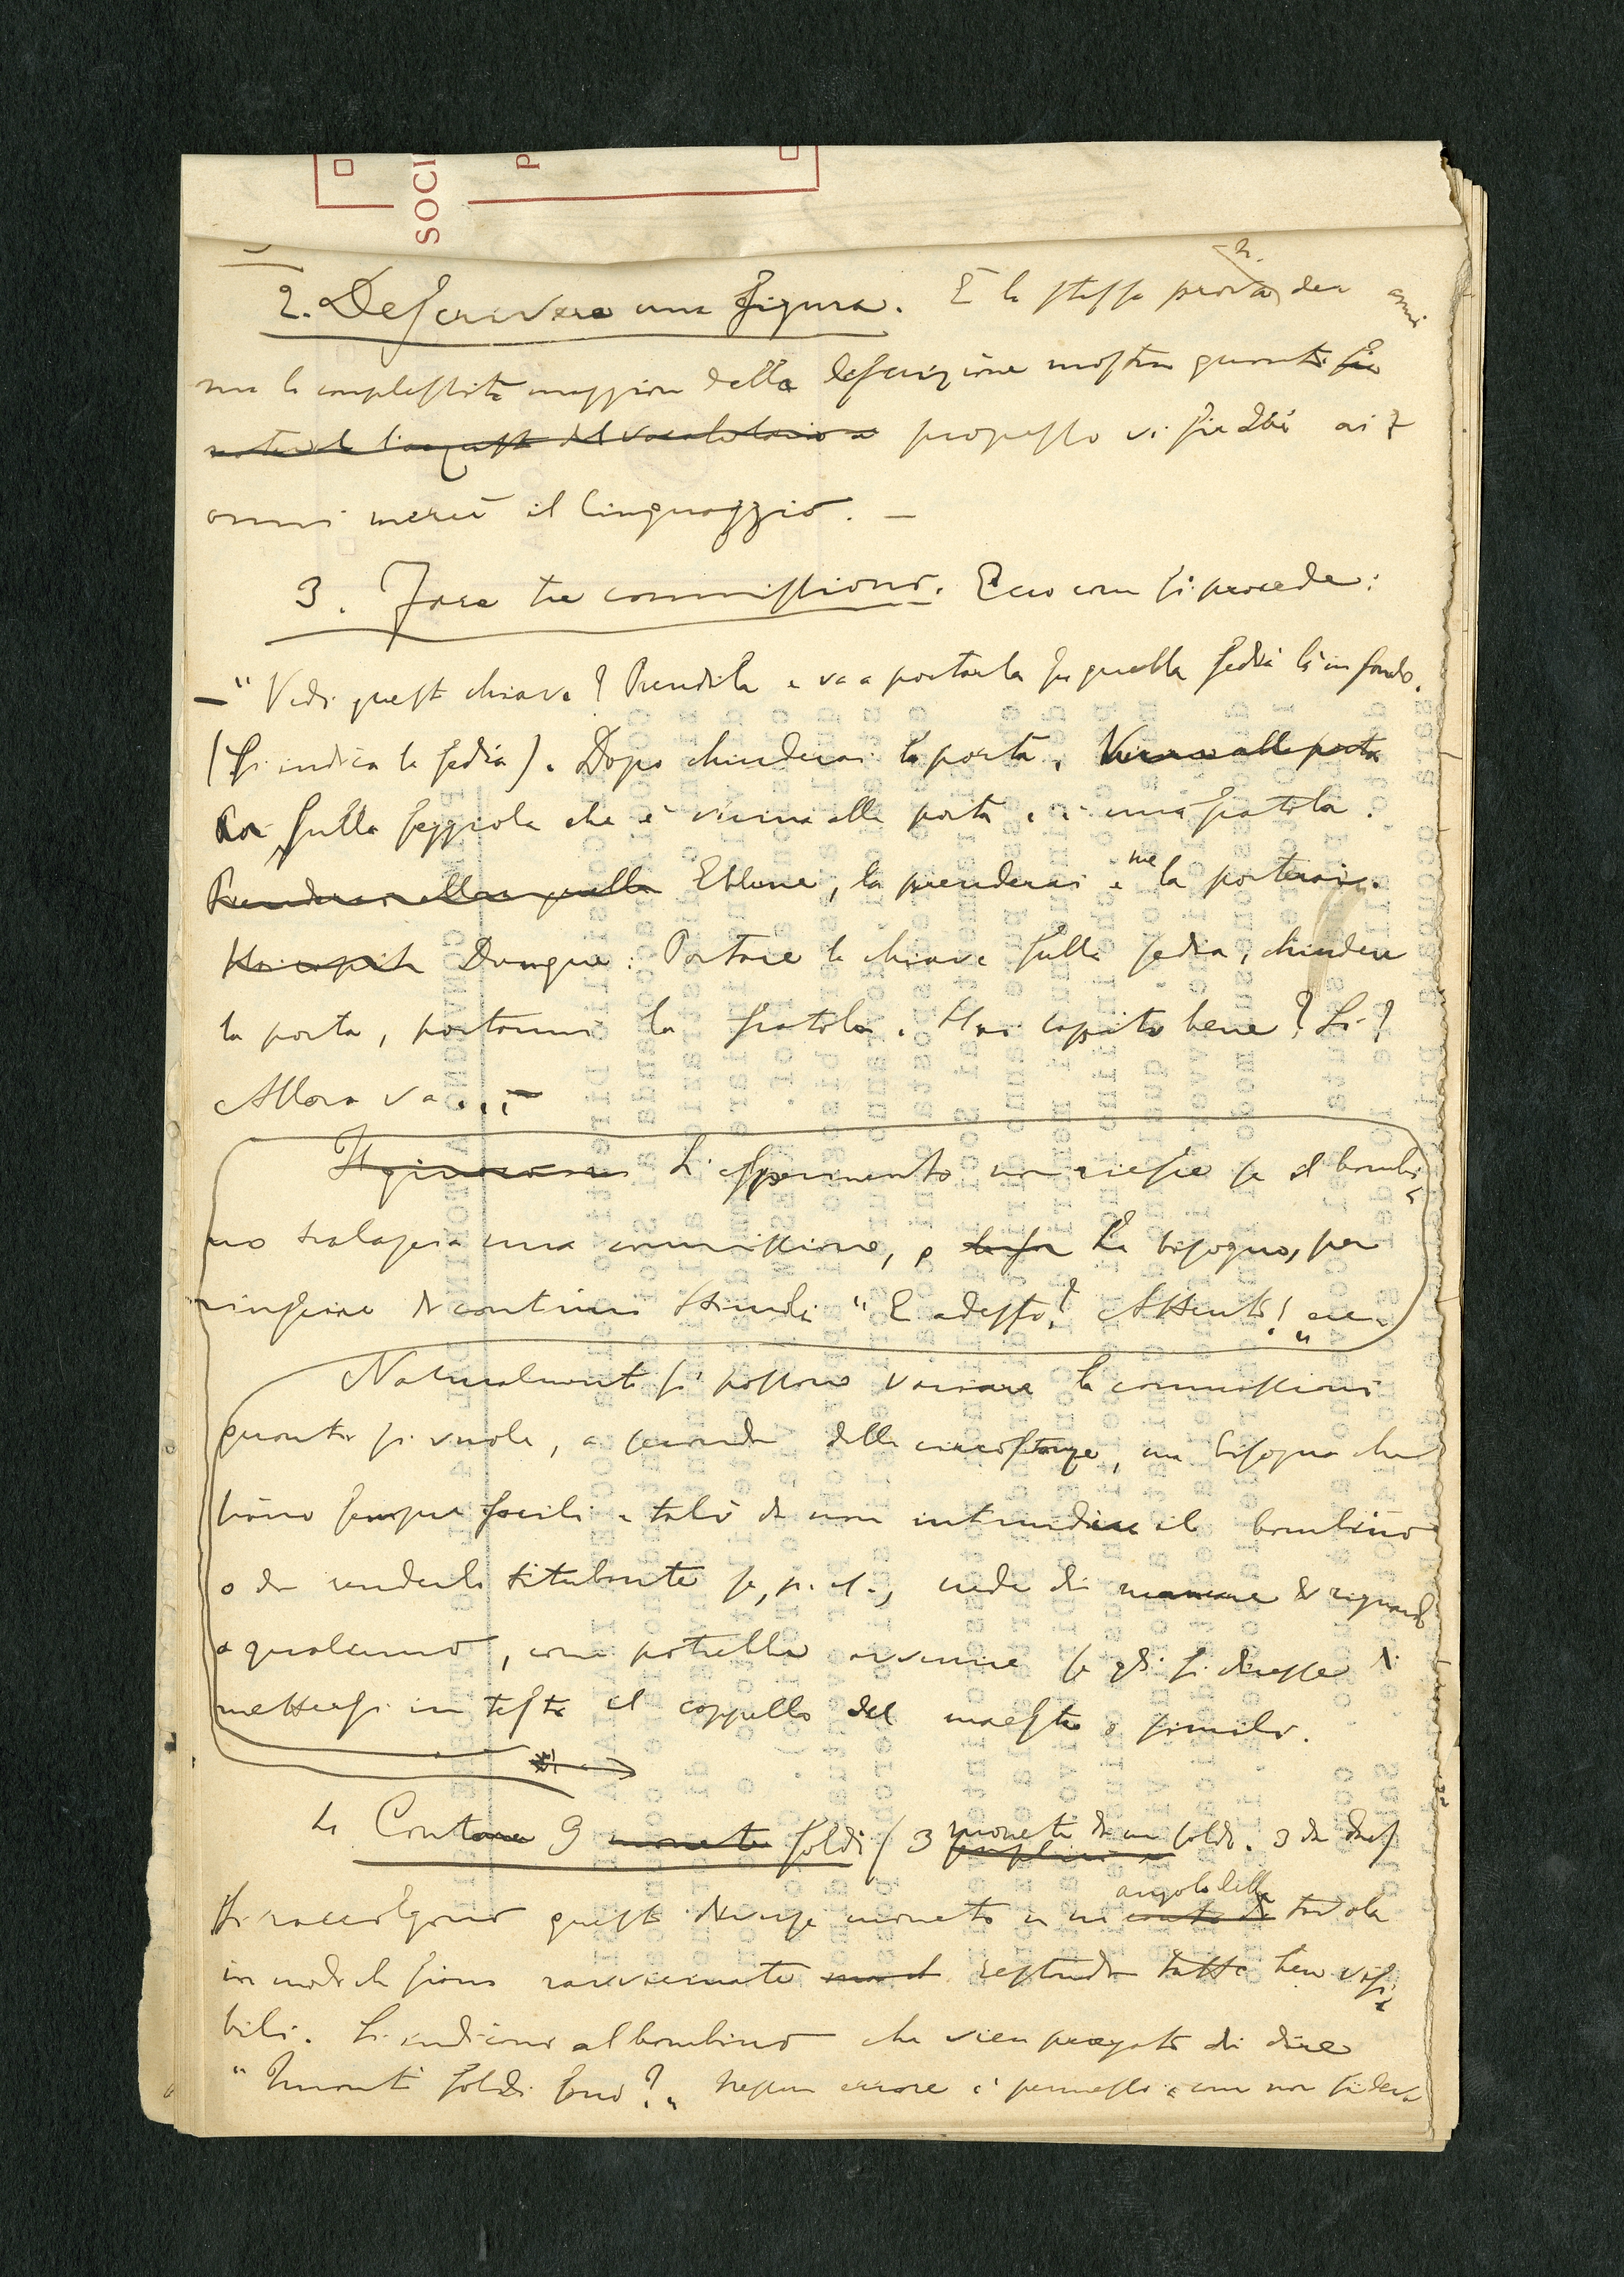 SOCI
P
2. Descrivere una figura. È la stessa prova dei 3 anni
ma la complessità maggiore della descrizione mostra quanto sia
notevole l'acquisto del vocabolario e progresso vi sia dai ai 7
anni mercè il linguaggio. —
3. Fare tre commissioni. Ecco come si procede:
— "Vedi questa chiave? Prendila e va a portarla su quella sedia là in fondo.
(Si indica la sedia). Dopo chiuderai la porta. Vicino alla porta
Poi sulla seggiola che è vicina alla porta c'è una scatola.
Prenderai allora quella Ebbene, la prenderai e me la porterai.
Hai capito Dunque: Portare la chiave sulla sedia, chiudere
la porta, portarmi la scatola. Hai capito bene? Sì?
Allora va... —
L'esperimento non riesce se il bambi-
no tralascia una commissione, o ha bisogno, per
riuscire di continui stimoli "E adesso? Attento!" ecc.
Naturalmente si possono variare le commissioni
quanto si vuole, a seconda delle circostanze, ma bisogna che
siano sempre facili e tali da non intimidire il bambino
o da renderlo titubante se, p. es., crede di mancare di riguardo
a qualcuno, come potrebbe avvenire se gli si dicesse di
mettersi in testa il cappello del maestro o simili.
4. Contare 9 monete soldi (3 monete da un soldo. 3 da due)
Si raccolgono queste diverse monete in un canto di angolo della tavola
in modo che siano ravvicinate restando tutte ben visi-
bili. Si indicano al bambino che vien pregato di dire
"Quanti soldi sono?" Nessun errore è permesso, come non si deve